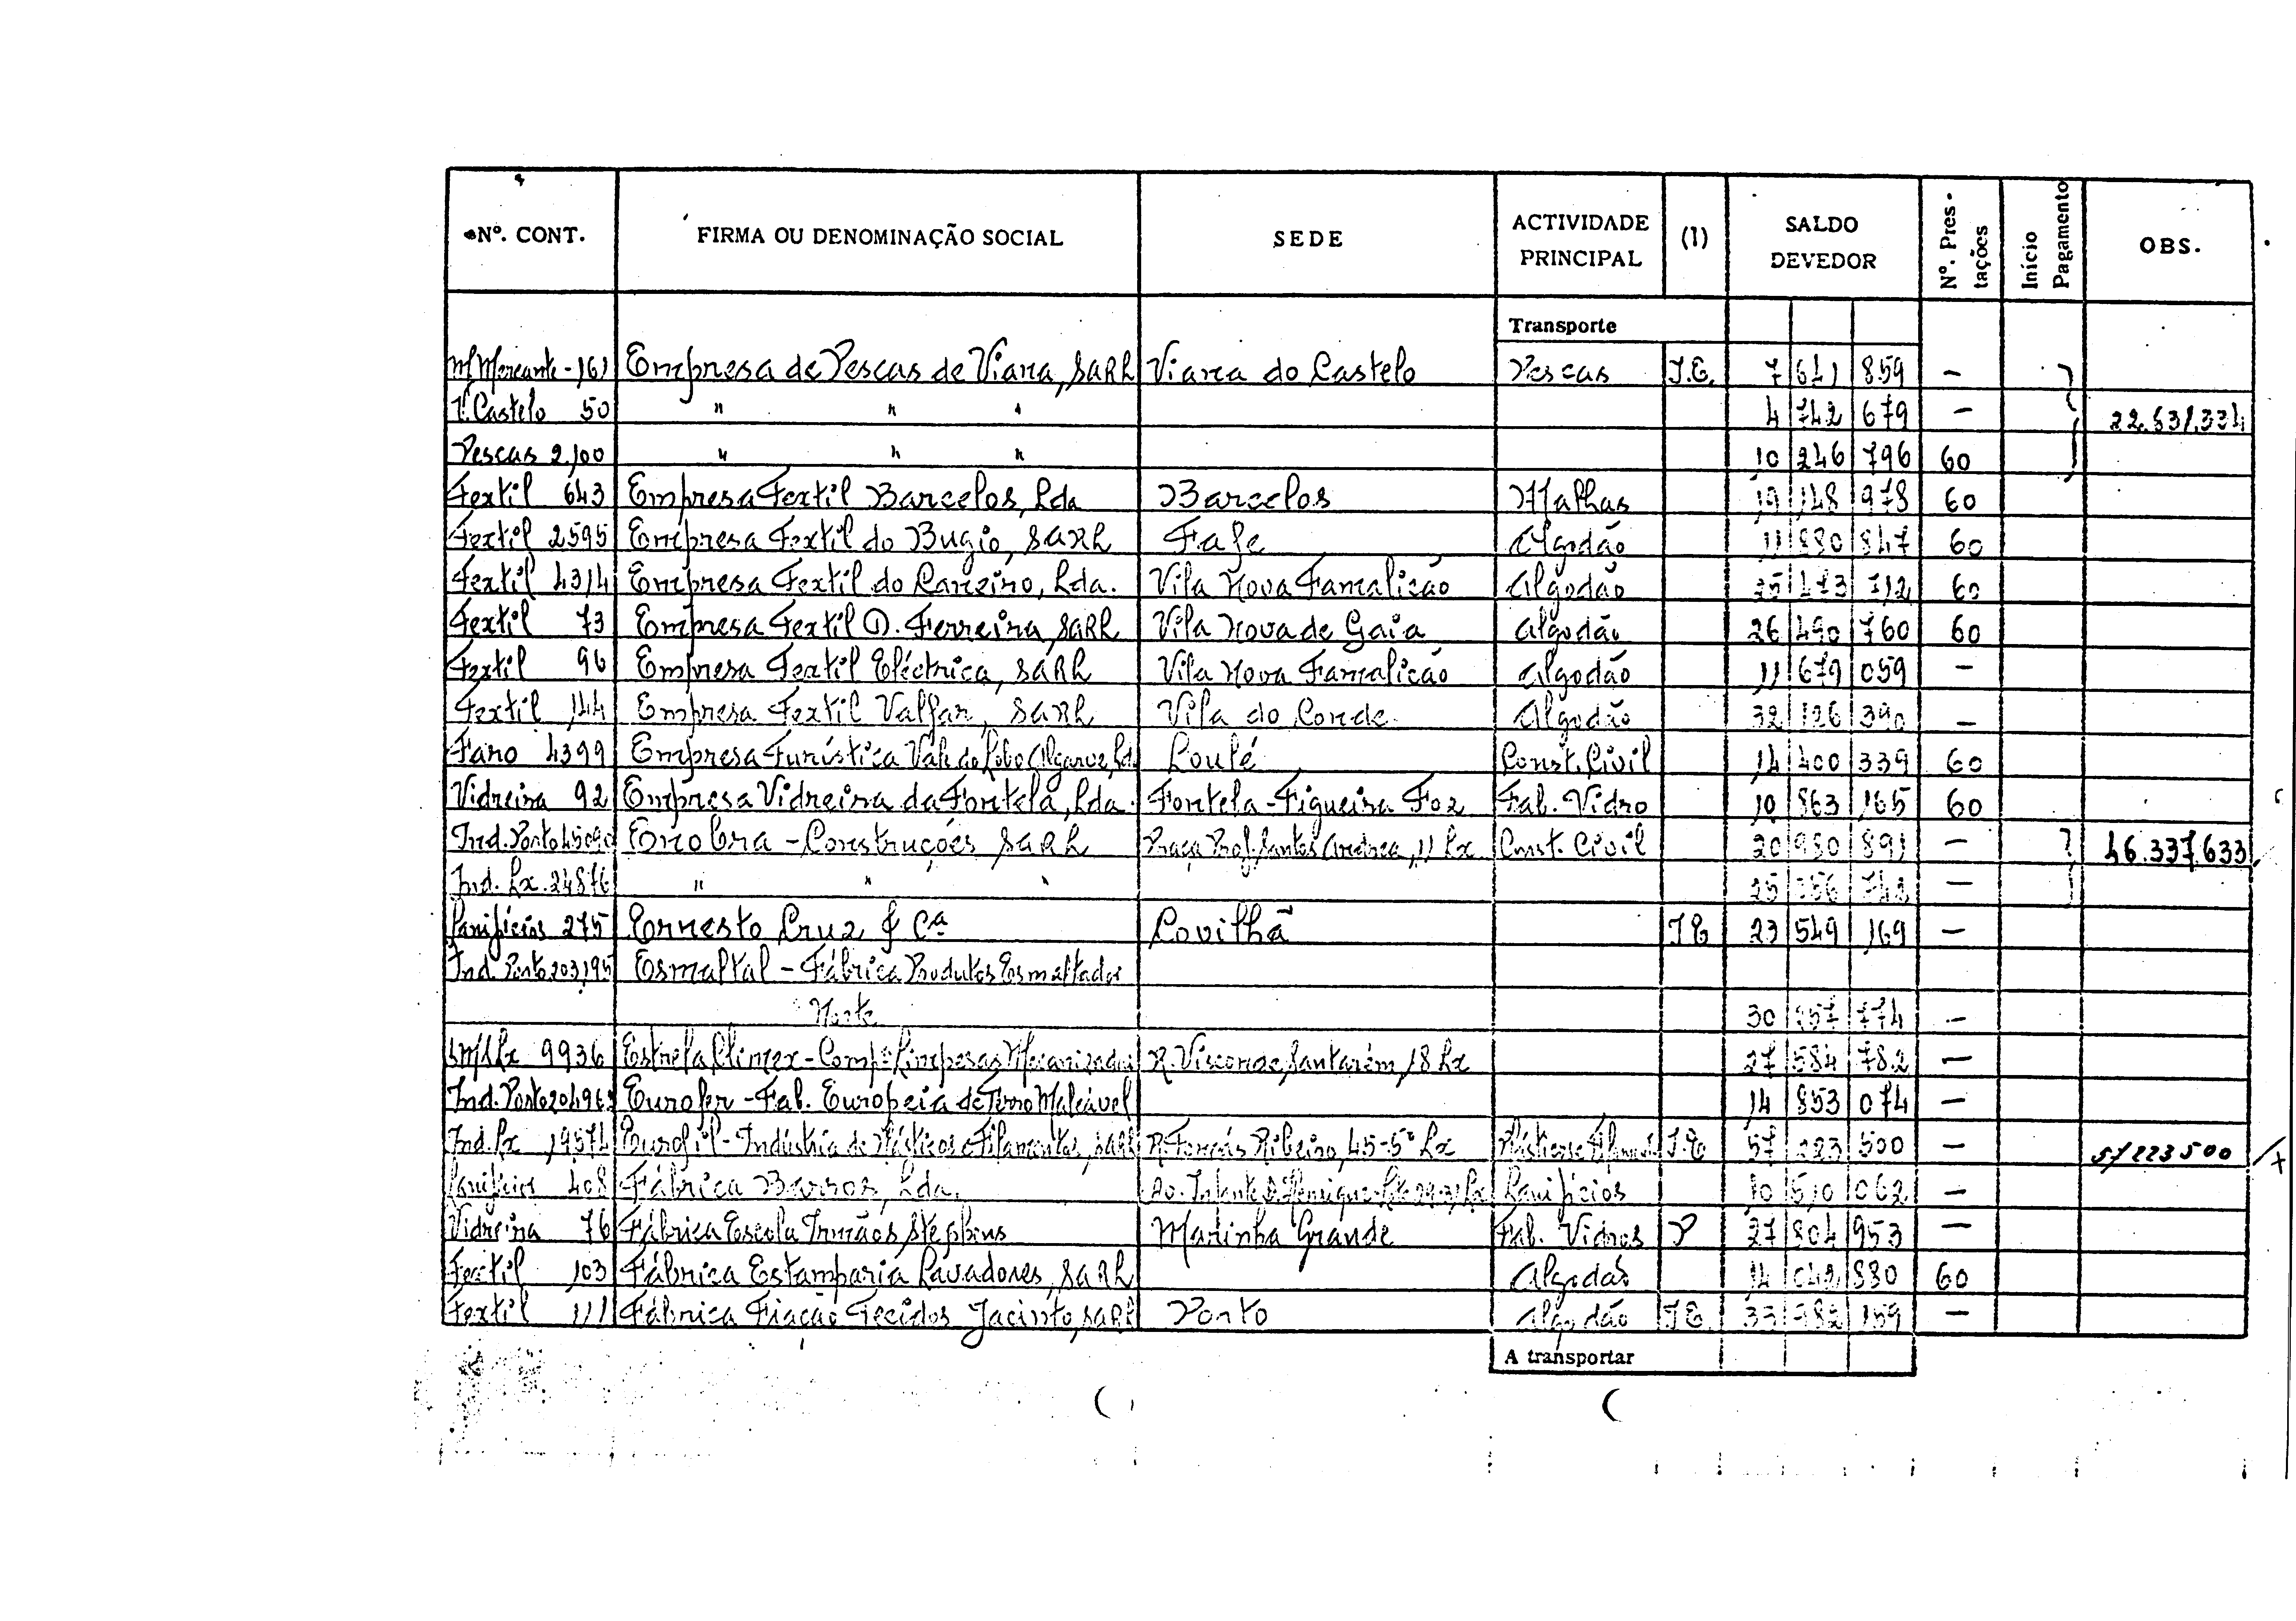 Nº. CONT. FIRMA OU DENOMINAÇÃO SOCIAL SEDE ACTIVIDADE PRINCIPAL (1) SALDO DEVEDOR Nº. Prestações Início Pagamento OBS.
Transporte
M. Mercante - 161 Empresa de Pescas de Viana, SARL Viana do Castelo Pescas I.E. 7 641 859 —
V. Castelo 50 " " " 4 742 679 — 22.631.334
Pescas 2.100 " " " 10 246 796 60
Textil 643 Empresa Textil Barcelos, Lda Barcelos Malhas 19 148 978 60
Textil 2595 Empresa Textil do Bugio, SARL Fafe Algodão 11 880 847 60
Textil 4314 Empresa Textil do Caneiro, Lda. Vila Nova Famalicão Algodão 60
Textil 73 Empresa Textil D. Ferreira, SARL Vila Nova de Gaia Algodão 26 490 760 60
Textil 96 Empresa Textil Eléctrica, SARL Vila Nova Famalicão Algodão 11 679 059 —
Textil 144 Empresa Textil Valfar, SARL Vila do Conde Algodão 32 126 390 —
Faro 4399 Empresa Turística Vale do Lobo Algarve, Lda Loulé Const. Civil 14 400 339 60
Vidreira 92 Empresa Vidreira da Fontela, Lda. Fontela - Figueira Foz Fab. Vidro 10 863 165 60
Ind. Porto Enobra - Construções SARL Praça Prof. Santos Andrea, 11 Lx Const. Civil 20 950 891 — 46.337.633
Ind. Lx. 24876 " " " —
Lanifícios 275 Ernesto Cruz & Cª Covilhã I E 23 549 169 —
Ind. Porto 203195 Esmaltal - Fábrica Produtos Esmaltados
Norte 30 857 774 —
Lx 9936 Estrela Climex - Compª Limpesas Mecanizadas R. Visconde Santarém, 18 Lx 27 584 782 —
Ind. Porto Eurofer - Fab. Europeia de Ferro Maleável 14 853 074 —
Ind. Lx 19574 Eurofil - Indústria de Plásticos e Filamentos, SARL R. Tomás Ribeiro, 45-5º Lx I.E 57 223 500 — 57 223 500
Lanifícios 408 Fábrica Barros, Lda. Av. Infante D. Henrique Lx Lanifícios 10 510 062 —
Vidreira 76 Fábrica Escola Irmãos Stephens Marinha Grande Fab. Vidros P 27 804 953 —
Textil 103 Fábrica Estamparia Lavadores, SARL Algodão 14 042 880 60
Textil 111 Fábrica Fiação Tecidos Jacinto, SARL Porto Algodão I E 33 159 —
A transportar